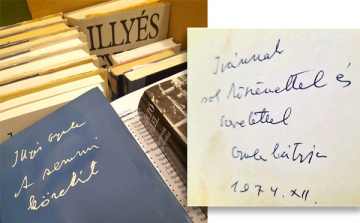 ILLYÉS
Illyés Gyula
A semmi
közelít
Ivánnak
sok köszönettel és
szeretettel
Gyula bátyja
1974. XII.